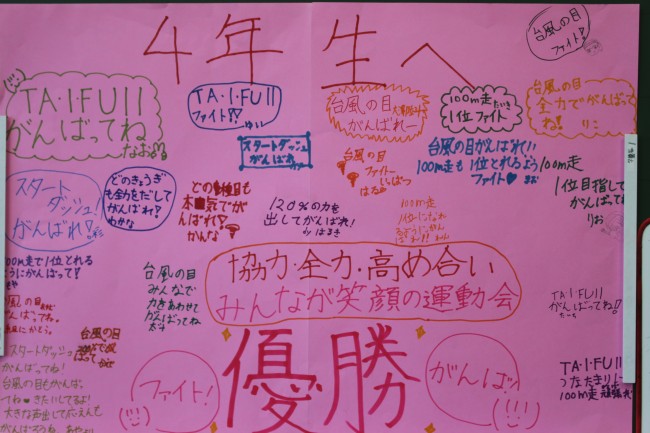 4年生へ
台風の目
ファイト!!
TA・I・FU||
がんばってね
なお
TA・I・FU||
ファイト!!
ゆい
スタートダッシュ
がんばれ
台風の目
がんばれー
100m走
1位ファイト
台風の目
全力でがんばって
ね!
りこ
スタート
ダッシュ!
がんばれ!
どのきょうぎ
も全力をだして
がんばれ!
わかな
どの種目も
本気でが
んばれ!
かんな
120%の力を
出してがんばれ!
はるき
台風の目
ファイトー
台風の目がんばれ!!
100m走も1位とれるよう
ファイト♥
100m走
1位目指して
がんばって
りお
100m走
1位
100m走で1位とれる
ようにがんばって!
台風の目
みんなで
力をあわせて
がんばってね
協力・全力・高め合い
みんなが笑顔の運動会
優勝
ファイト!
がんばっ
TA・I・FU||
がんばってね!!
TA・I・FU||
100m走
台風の目
スタートダッシュ
がんばってね!
台風の目もがんばっ
てね
大きな声出して応えんも